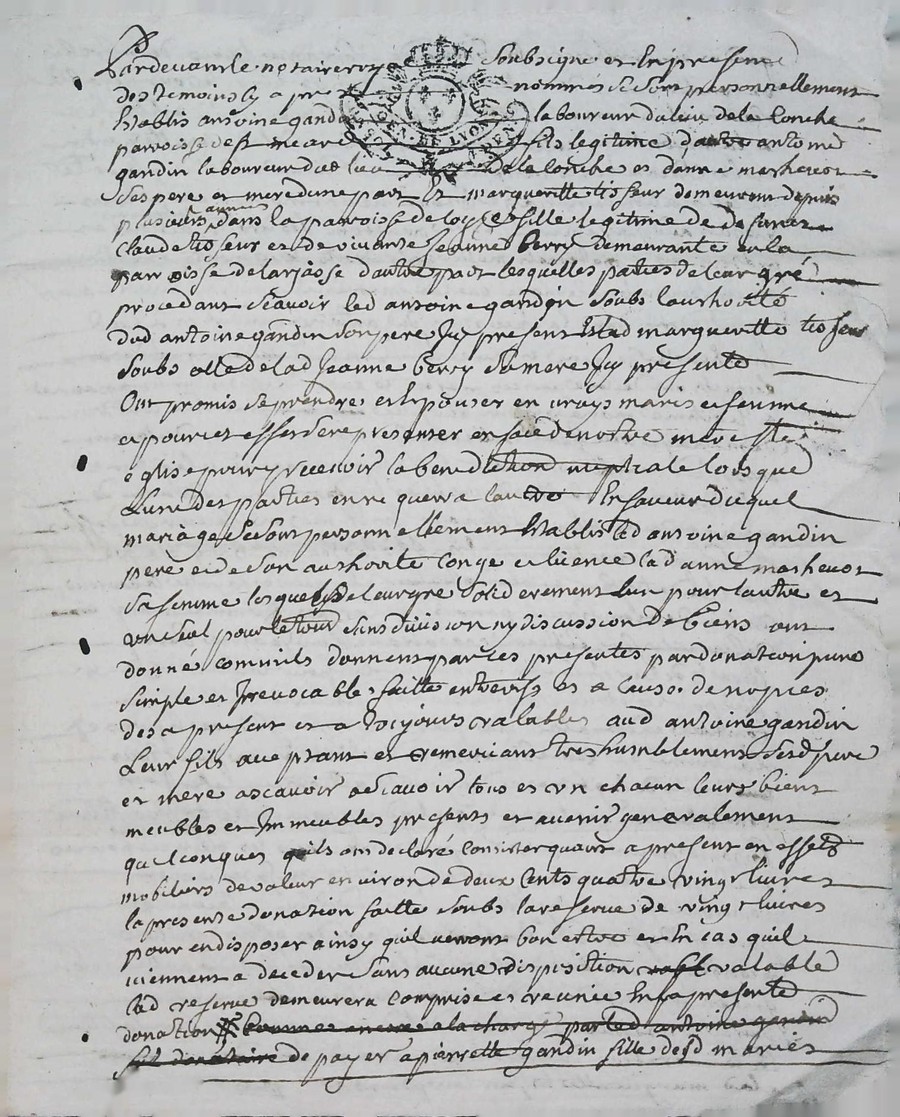 Pardevant le notaire roy soubsigné et En presence
des temoins cy apres nommés se sont personnellement
Establis antoine gand laboureur du lieu de la Conche
paroisse de st mear fils legitime d'autre antoine
gandin laboureur dud lieu de la Conche et d'anne mashevot
ses pere et mere d'une part Et marguerite tisseur demeurant depuis
plusieurs années dans la paroisse de fille legitime de defunt
claude tisseur et de vivante Jeanne Berry demeurante en la
paroisse de larjasse d'autre part lesquelles parties de leur gré
procedant scavoir led antoine gandin soubs l'authorité
dud antoine gandin son pere Icy present Et lad marguerite tisseur
soubs celle de lad Jeanne berry sa mere Icy presente
Ont promis se prendre et Epouser en vrays maris et femme
et pour cet effet se representer en face de notre mere ste
eglise pour y recevoir la benediction nuptiale lorsque
L'une des parties en requerra l'autre En faveur duquel
mariage se sont personnellement Establis led antoine gandin
pere et de son authorité conge et licence lad anne mashevot
sa femme lesquels de leur gré solidairement l'un pour l'autre et
un seul pour le tout sans division ny discussion de biens ont
donné comm'ils donnent par ces presentes par donation pure
simple et Irrevocable faitte entrevifs et a cause de nopces
des a present et a toujours valables aud antoine gandin
Leur fils acceptant et remerciant tres humblement sesd pere
et mere ascavoir tous et un chacun leurs biens
meubles et Immeubles presents et avenir generalement
quelconques qu'ils ont declaré consister quant a present en effets
mobiliers de valeur environ de deux cents quatre vingt livres
la presente donation faitte soubs la reserve de vingt livres
pour en disposer ainsy qu'il verront bon estre et En cas quil
viennent a deceder sans aucune disposition valable
lad reserve demeurera comprise et reunie En la presente
donation a la charge par led antoine gandin
fils donataire de payer a pierrette gandin fille desd mariés